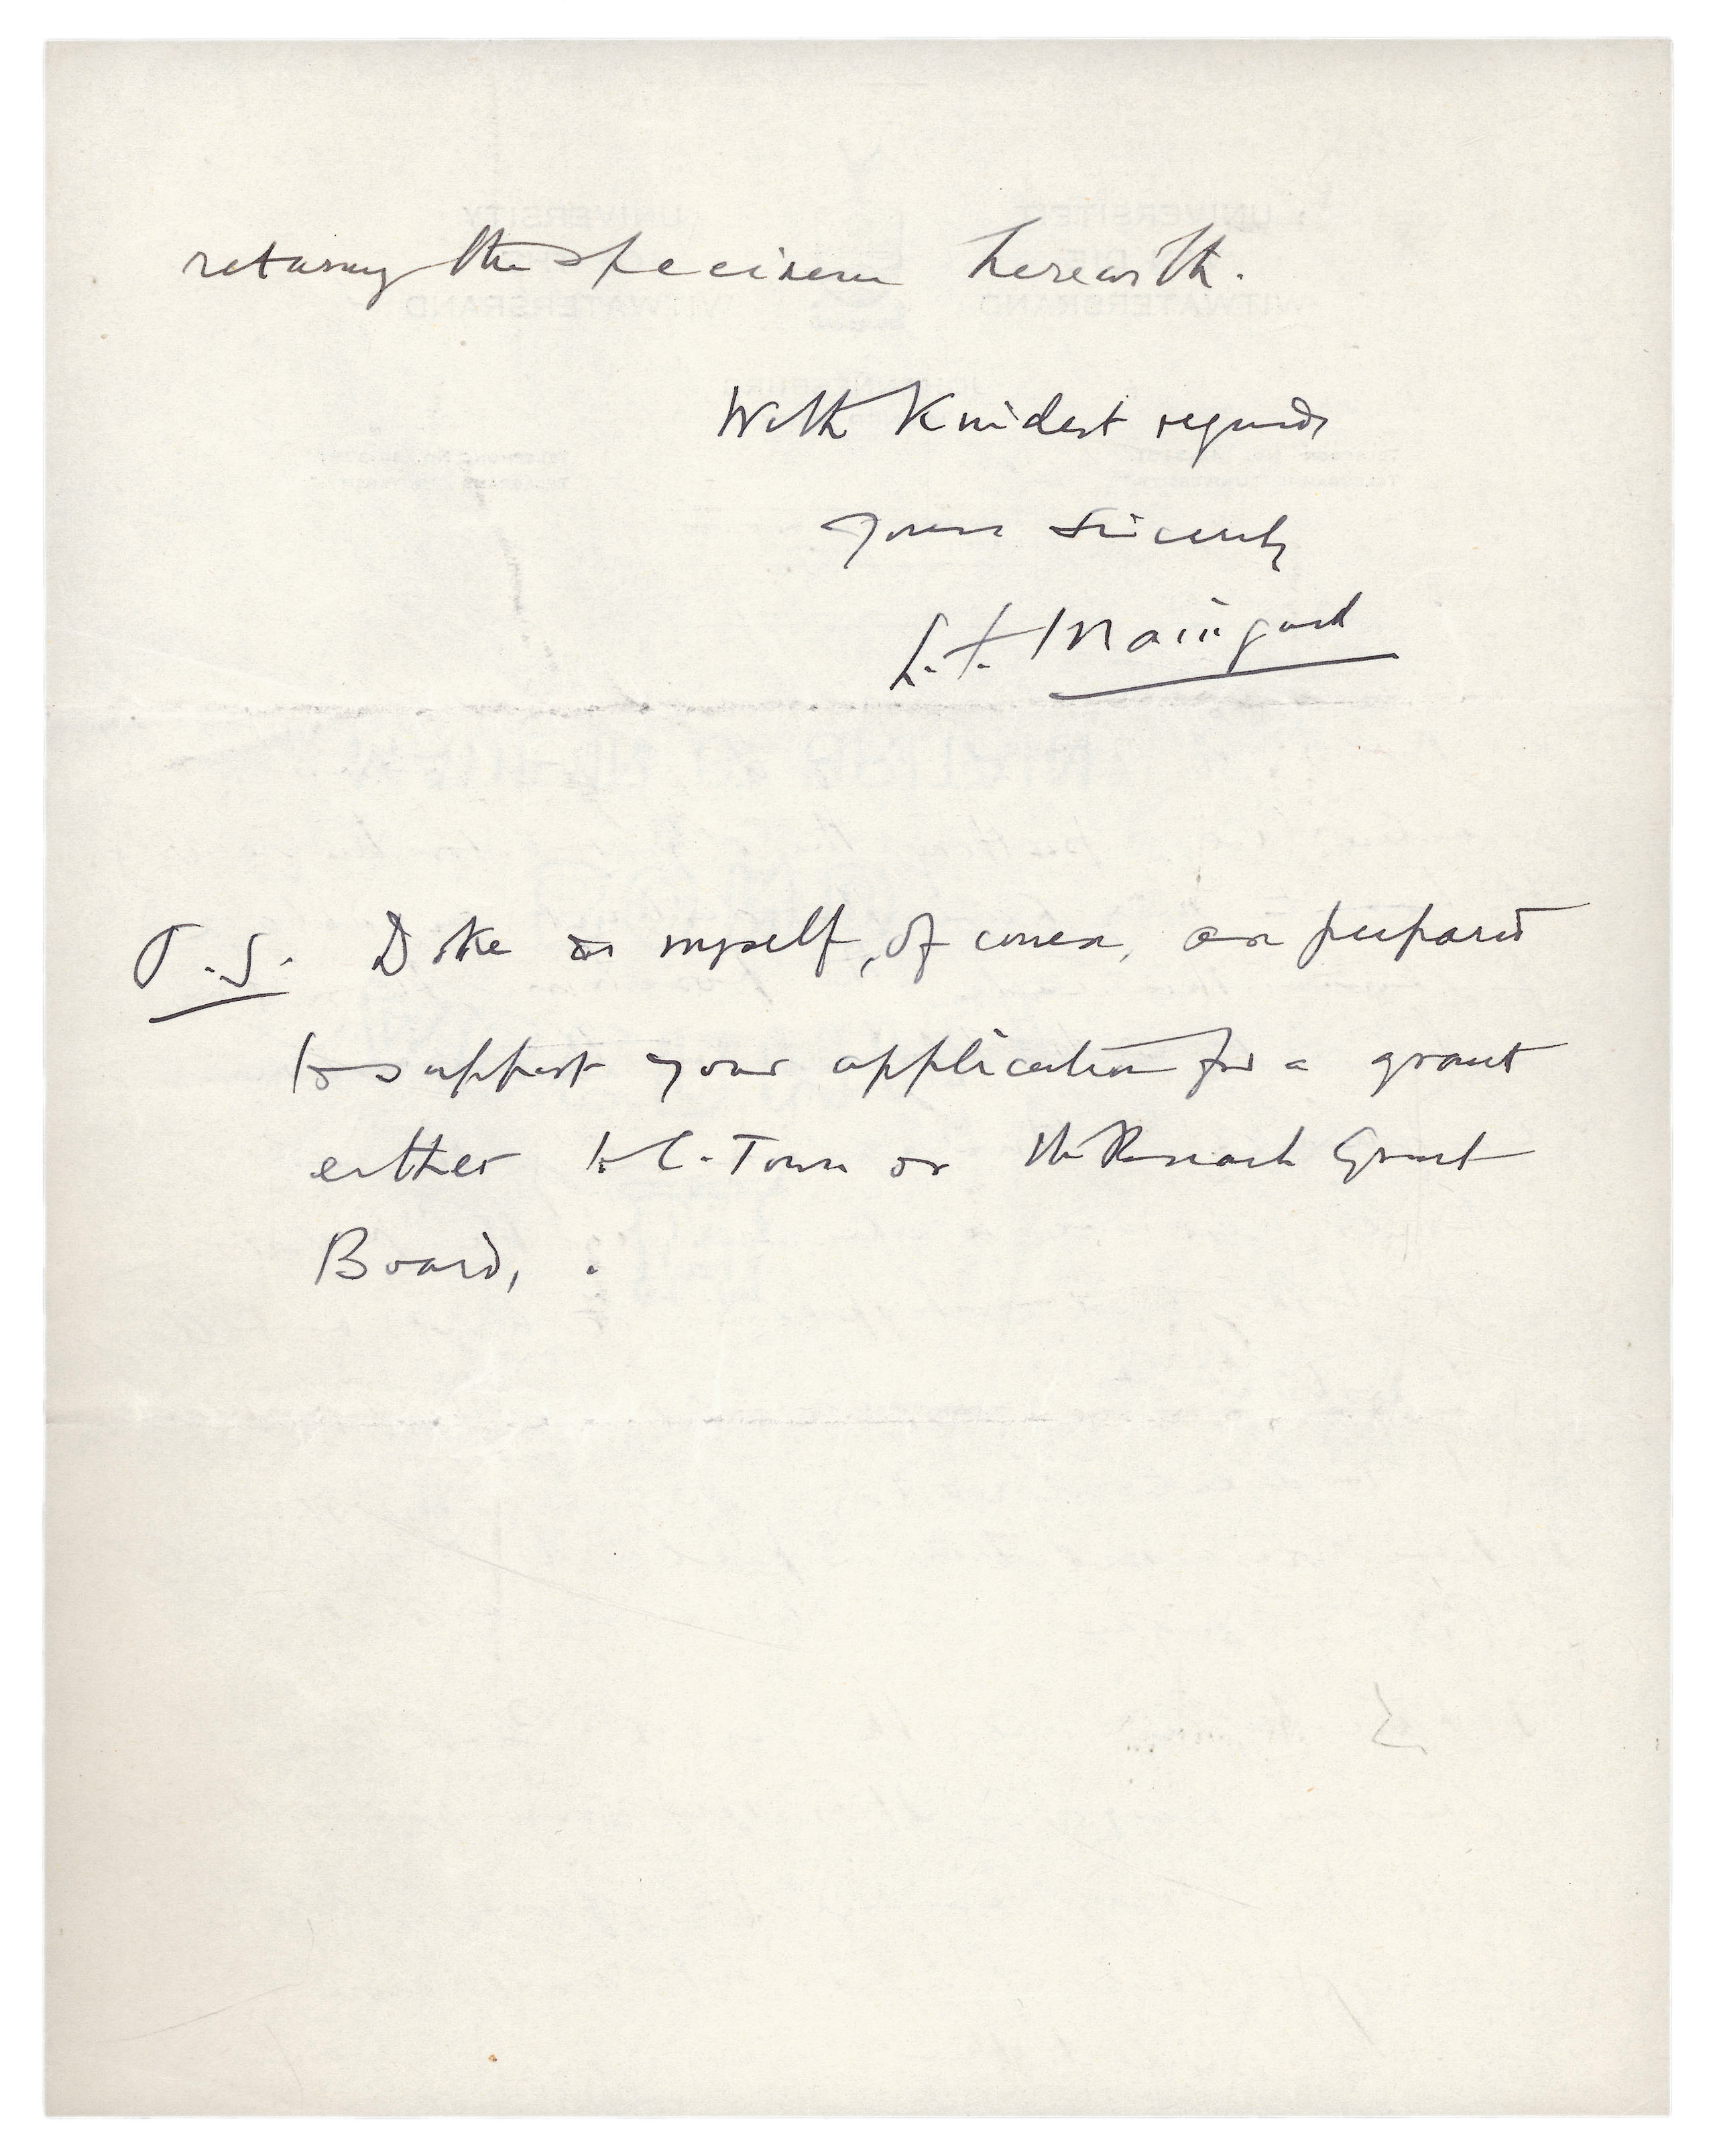 returning the specimen herewith.
With Kindest regards
Yours Sincerely
L.F. Maingard
P.S. Doke or myself, of course, are prepared
to support your application for a grant
either to C. Town or the Research Grant
Board, .